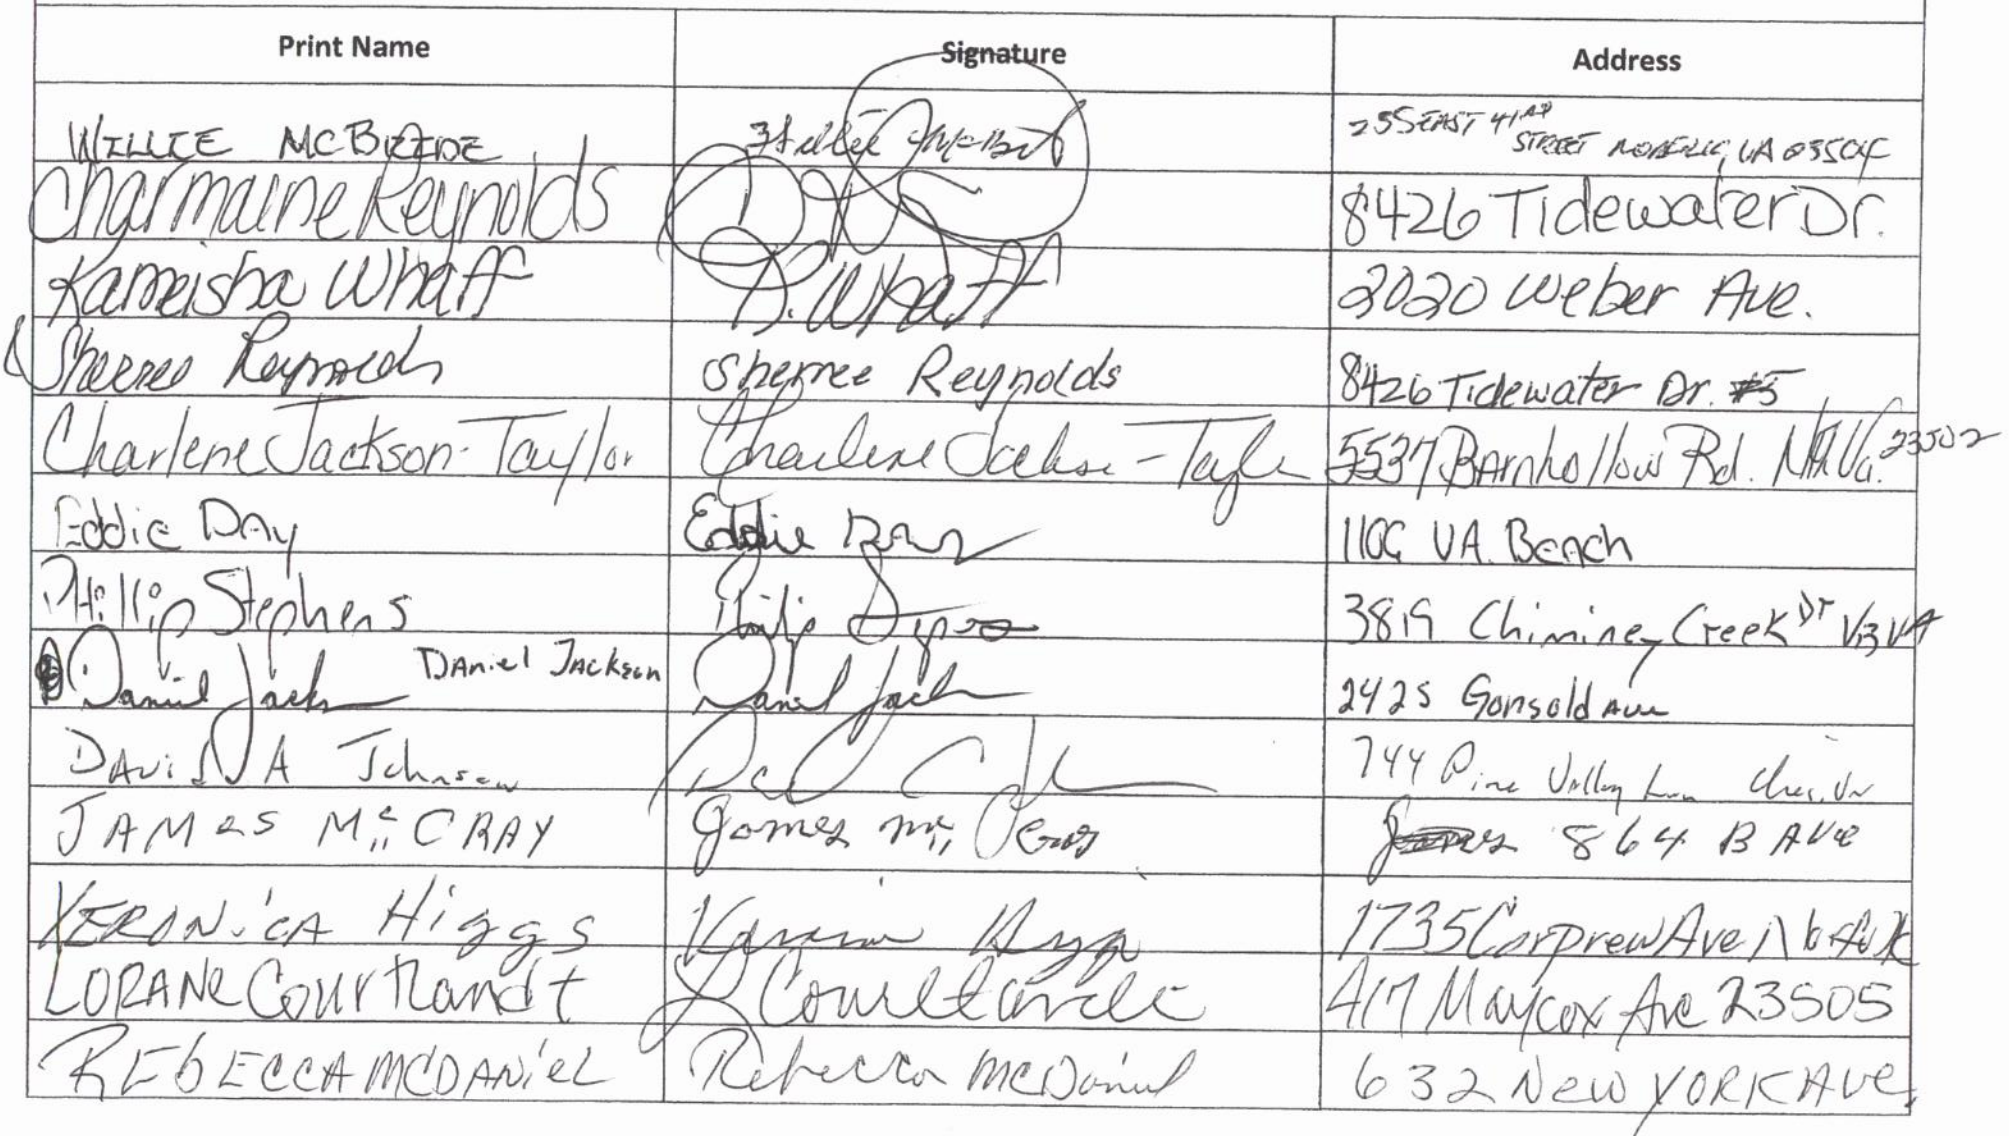 Print Name Signature Address
WILLIE MCBRIDE 255 EAST 41st
STREET NORFOLK, VA 23504
Charmaine Reynolds 8426 Tidewater Dr.
Kameisha Whaff K. Whaff 2020 Weber Ave.
Sherree Reynolds Sherree Reynolds 8426 Tidewater Dr. #5
Charlene Jackson-Taylor Charlene Jackson-Taylor 5537 Barnhollow Rd. Va. 23502
Eddie DAy Eddie Day VA. Beach
Phillip Stephens Philip 3819 Chiminey Creek Dr VB VA
Daniel Jack Daniel Jackson Daniel Jack 2425 Gonsold Ave
David A Johnson 744 Pine Valley
JAMES Mc CRAY James Mc 864 B AVE
VERONiCA Higgs 1735 Corprew Ave Norfolk
LORANE Courtlandt L Courtlandt 417 Maycox Ave 23505
REbECCA MCDANiEL Rebecca McDaniel 632 New YORK AVE